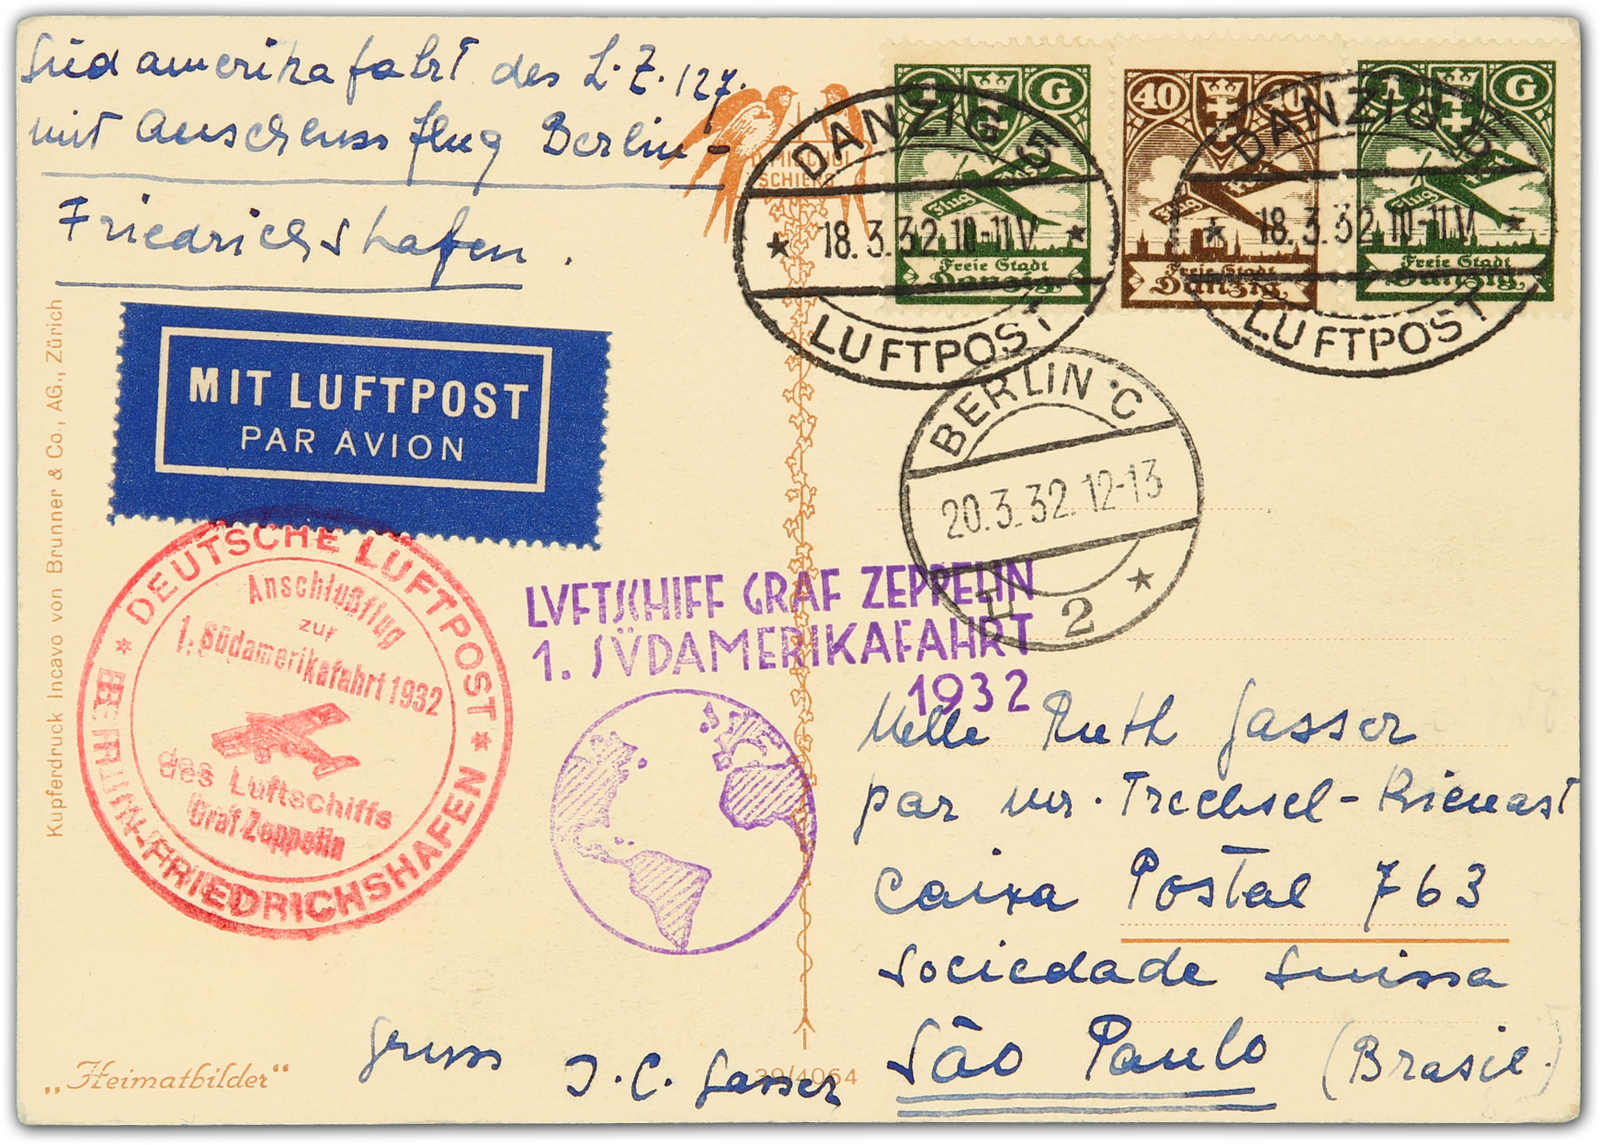 Südamerikafahrt des L.Z. 127.
mit Anschlussflug Berlin-
Friedrichshafen.
DANZIG 5
18.3.32.10-11V
LUFTPOST
1 G
Flug
Freie Stadt
Danzig
40 40
Flug
Freie Stadt
Danzig
1 G
Flug
Freie Stadt
Danzig
DANZIG 5
18.3.32.10-11V
LUFTPOST
MIT LUFTPOST
PAR AVION
BERLIN C
20.3.32.12-13
2
DEUTSCHE LUFTPOST
Anschlußflug
zur
1. Südamerikafahrt 1932
des Luftschiffs
Graf Zeppelin
BERLIN-FRIEDRICHSHAFEN
LUFTSCHIFF GRAF ZEPPELIN
1. SÜDAMERIKAFAHRT
1932
Melle Ruth Gasser
par Trechsel-
Caixa Postal 763
Sociedade Suissa
São Paulo (Brasil.)
Gruss J. C. Gasser
Kupferdruck Incavo von Brunner & Co., AG., Zürich
„Heimatbilder“
39/4064